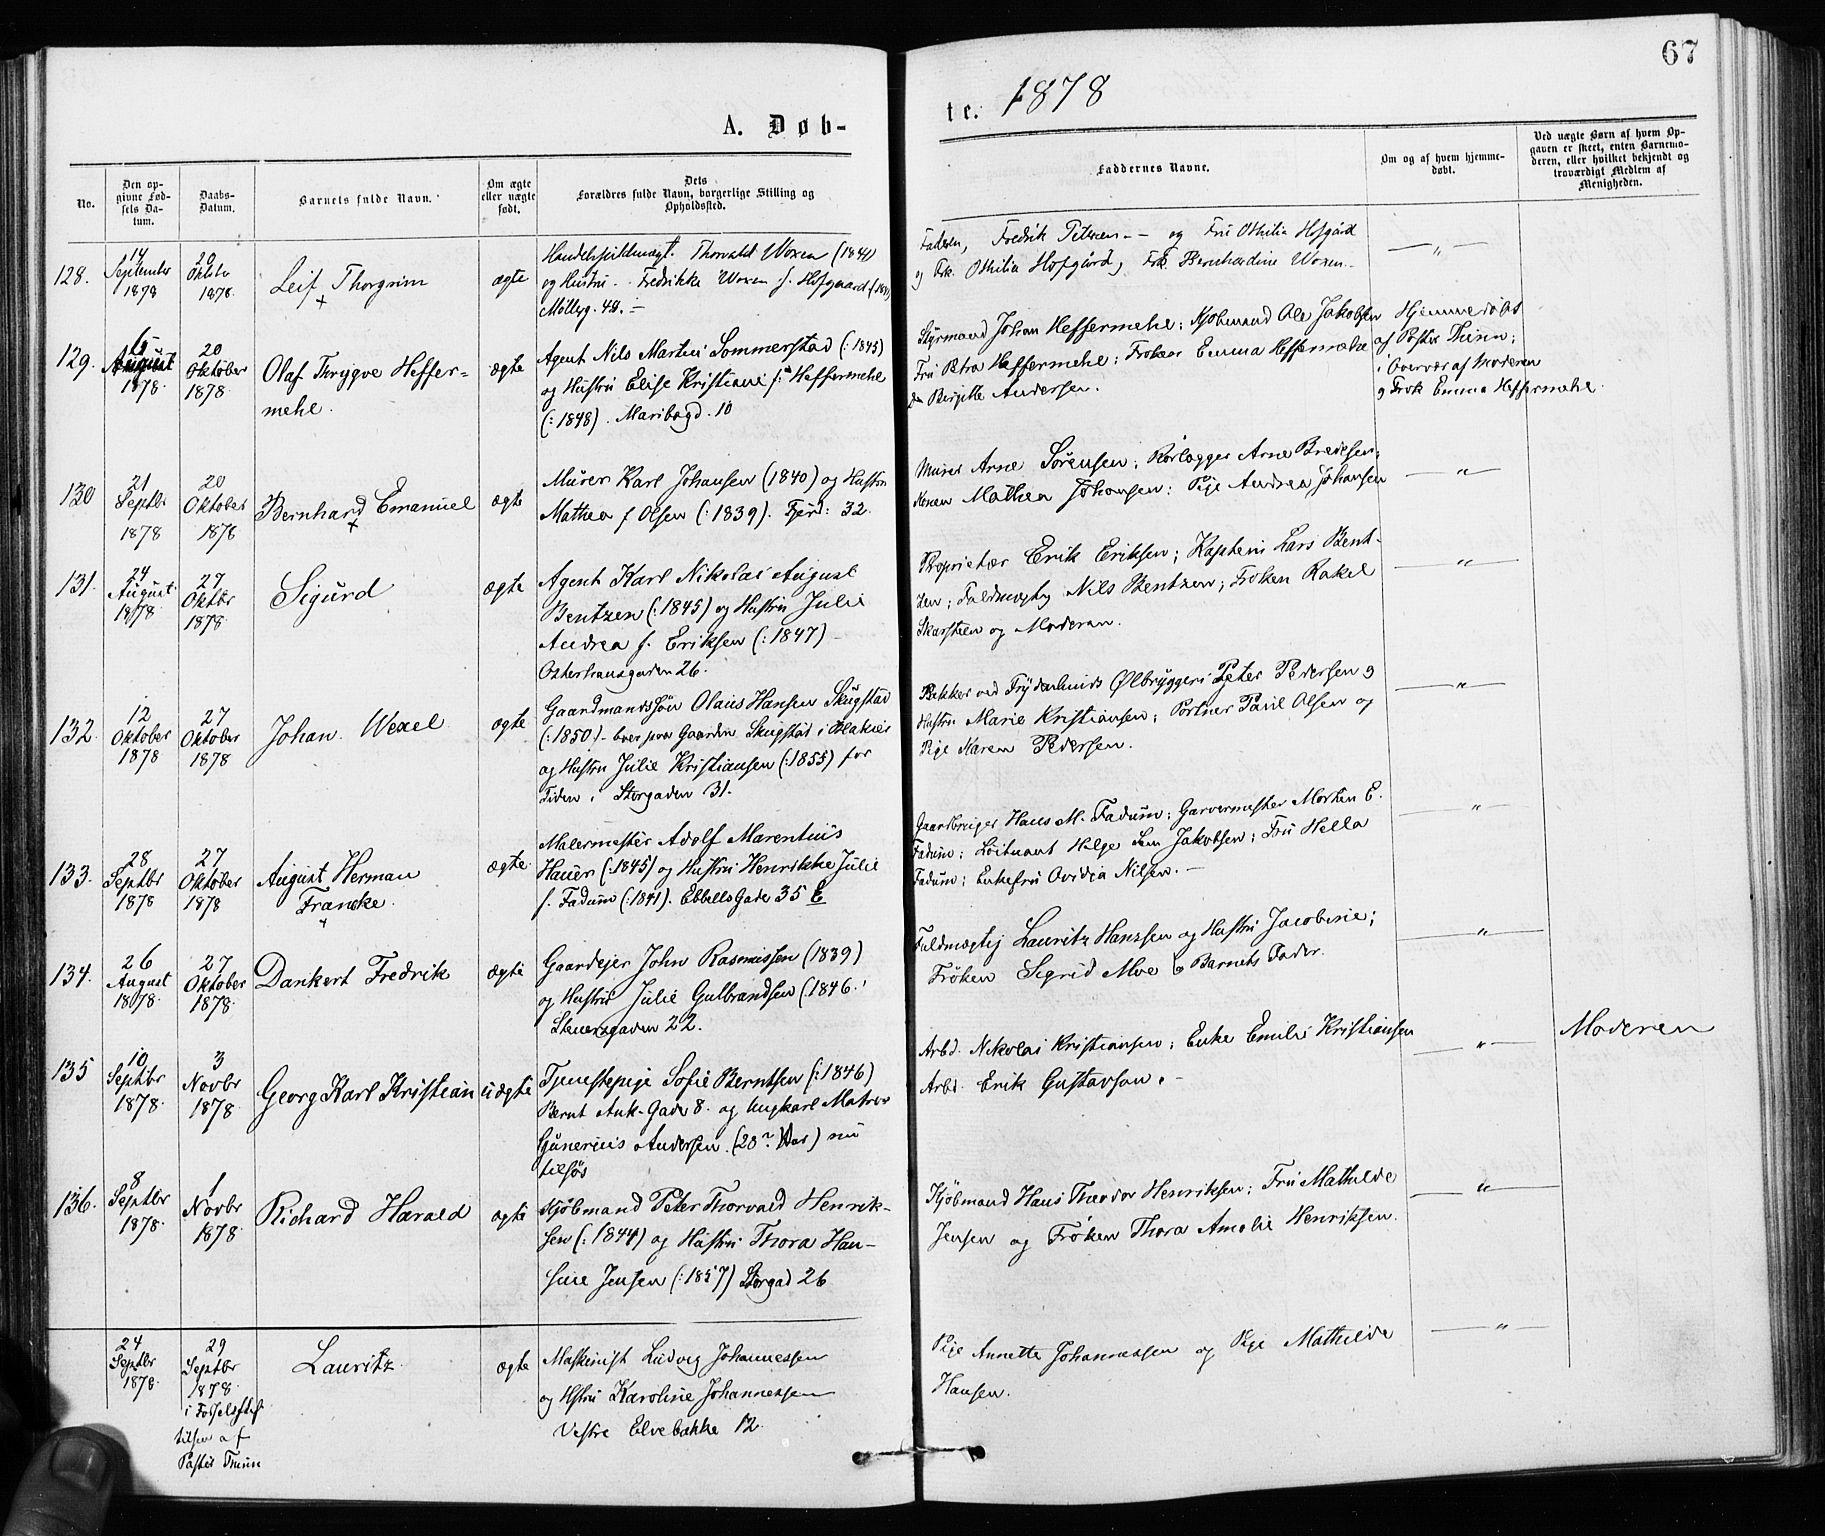 67
A. Døb-
te. 1878
No.
Den opgivne Fødsels Datum.
Daabs-Datum.
Barnets fulde Navn.
Om ægte eller uægte født.
Dets Forældres fulde Navn, borgerlige Stilling og Opholdssted.
Faddernes Navne.
Om og af hvem hjemmedøbt.
Ved uægte Børn af hvem Opgaven er skeet, enten Barnemoderen, eller hvilket bekjendt og troværdigt Medlem af Menigheden.
128.
14 September 1878
20 Oktobr 1878.
Leif Thorgrim
ægte
Thorvald Woxen (1841)
og Hustru Fredrikke Woxen f. Hofgaard
Møllerg. 48.
Faderen, Fredrik Petersen og Fru Othilia Hofgård
og Frk. Othilia Hofgård, Frk. Bernhardine Woxen
— " —
129.
August 1878.
20 Oktober 1878.
Olaf Thrygve Heffer=
mehl.
ægte
Agent Nils Martin Sommerstad (:1845)
og Hustru Elise Kristiane f: Heffermehl
(:1848). Maribogd. 10
Styrmand Johan Heffermehl; Kjøbmand Ole Jakobsen
Fru Petra Heffermehl; Frøken Emma Heffermehl
Birgitte Andersen.
Hjemmedøbt
af Pastor Thinn;
i Overvær af Moderen
og Frøk Emma Heffermehl.
130
21 Septbr 1878
20 Oktober 1878
Bernhard Emanuel
ægte
Murer Karl Johansen (1840) og Hustru
Mathea f Olsen (:1839). Fjerd: 32.
Murer Arne Sørensen; Rørlægger Arne Bredesen;
Konen Mathea Johansen; Pige Andrea Johansen
— " —
131.
24 August 1878.
27 Oktbr 1878
Sigurd
ægte
Agent Karl Nikolai August
Bentzen (:1845) og Hustru Julie
Andrea f. Eriksen (:1847) –
Osterhausgaden 26.
Proprietær Erik Eriksen; Kaptein Lars Bent-
zen; Fuldmægtig Nils Bentzen; Frøken Rakel
Skarstien og Moderen.
— " —
132.
12 Oktober 1878
27 Oktober 1878
Johan Wexel
ægte
Gaardmandssøn Olaus Hansen Skugstad
(:1850) – bor paa Gaarden Skugstad i Blakier
og Hustru Julie Kristiansen (:1855) for
Tiden i Storgaden 31.
Bakker ved Frydenlunds Ølbryggeri Peter Pedersen og
Hustru Marie Kristiansen; Portner Paul Olsen og
Pige Karen Pedersen.
— " —
133.
28 Septbr 1878
27 Oktober 1878
August Herman
Francke.
ægte.
Malermester Adolf Marentius
Hauer (:1845) og Hustru Henrikke Julie
f. Fadum (:1841). Ebbells Gade 35 E
Gaardbruger Hans M. Fadum; Garvermester Morten E.
Fadum; Løitnant Helge Sem Jakobsen; Fru Hella
Fadum; Enkefru Ovidia Nilsen. –
— " —
134.
26 August 1878.
27 Oktober 1878.
Dankert Fredrik
ægte
Gaardejer John Rasmussen (1839)
og Hustru Julie Gulbrandsen (1846.
Steners gaden 22.
Fuldmægtig Lauritz Hanssen og Hustru Jacobine;
Frøken Sigrid Moe og Barnets Fader.
— " —
135
10 Septbr 1878.
3 Novbr 1878.
Georg Karl Kristian
uægte
Tjenestepige Sofie Berntsen (:1846)
Bernt Ank-Gade 8. og Ungkarl Matros
Gunerius Andersen. (28? Aar) nu
tilsøs
Arbd. Nikolai Kristiansen; Enke Emilie Kristiansen
Arbd. Erik Gustavson. –
— " —
Moderen
136.
8 Septbr 1878.
1 Novbr 1878.
Richard Harald
ægte
Kjøbmand Peter Thorvald Henrik-
sen (:1844) og Hustru Thora Han-
sine Jensen (:1857) Storgad 26
Kjøbmand Hans Theodor Henriksen; Fru Mathilde
Jensen og Frøken Thora Amalie Henriksen.
— " —
24 Septbr 1878.
29 Septbr 1878.
i Fødselsstif
tilsen af
Pastor Thinn
Lauritz
ægte
Maskinist Ludvig Johannessen
og Hstru Karoline Johannessen
Vestre Elvebakke 12.
Pige Annette Johannessen og Pige Mathilde
Hansen.
— " —